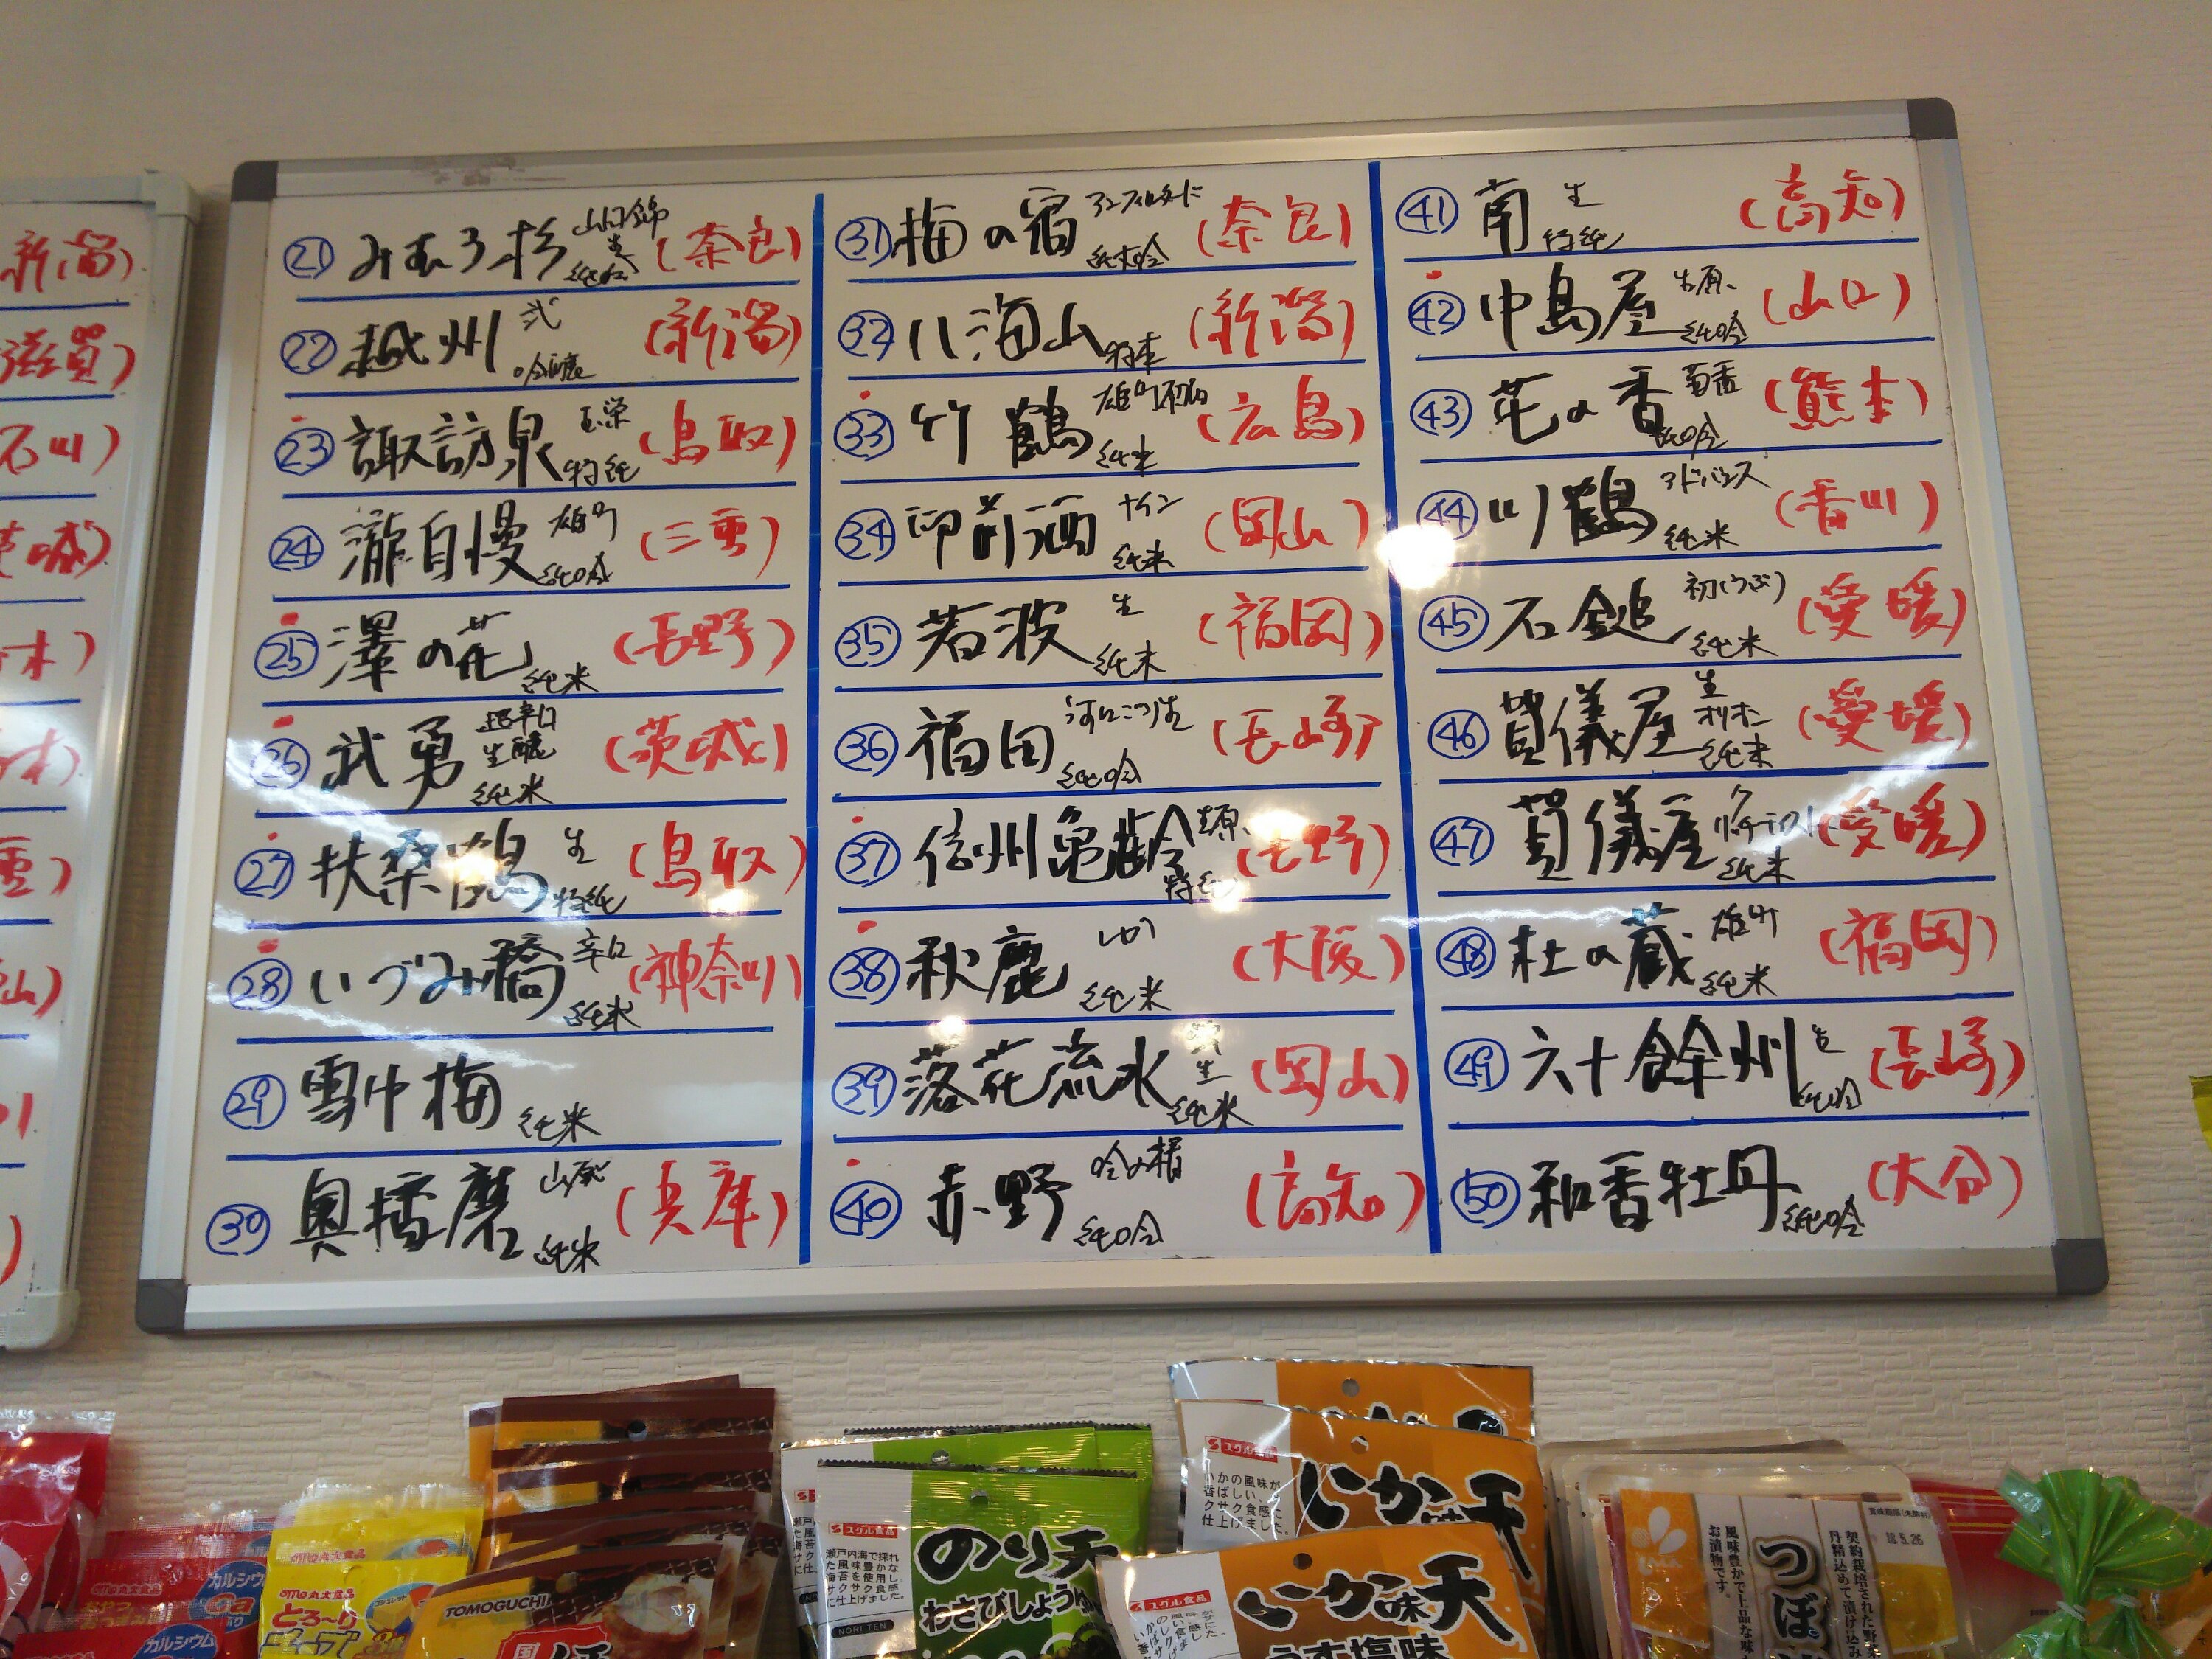 新潟)
滋賀)
石川)
茨城)
木)
木)
重)
山)
川
㉑ みむろ杉 山田錦 生 純吟 (奈良)
㉒ 越州 弐 吟醸 (新潟)
㉓ 諏訪泉 玉栄 特純 (鳥取)
㉔ 瀧自慢 雄町 純吟 (三重)
㉕ 澤の花 純米 (長野)
㉖ 武勇 超辛口 生酛 純米 (茨城)
㉗ 扶桑鶴 生 特純 (鳥取)
㉘ いづみ橋 辛口 純米 (神奈川)
㉙ 雪中梅 純米
㉚ 奥播磨 山廃 純米 (兵庫)
㉛ 梅の宿 アンフィルタード 純大吟 (奈良)
㉜ 八海山 特本 (新潟)
㉝ 竹鶴 雄町 純米 (広島)
㉞ 御前酒 ナイン 純米 (岡山)
㉟ 若波 生 純米 (福岡)
㊱ 福田 純吟 (長崎)
㊲ 信州亀齢 生原 特純 (長野)
㊳ 秋鹿 純米 (大阪)
㊴ 落花流水 生 純米 (岡山)
㊵ 赤野 吟の精 純吟 (高知)
㊶ 南 生 特純 (高知)
㊷ 中島屋 生原 純吟 (山口)
㊸ 花の香 菊香 純吟 (熊本)
㊹ 川鶴 アドバンス 純米 (香川)
㊺ 石鎚 初しぼり 純米 (愛媛)
㊻ 賀儀屋 生 オリオン 純米 (愛媛)
㊼ 賀儀屋 純米 (愛媛)
㊽ 杜の蔵 雄町 純米 (福岡)
㊾ 六十餘州 生 純吟 (長崎)
㊿ 和香牡丹 純吟 (大分)
カルシウム
丸大食品
とろ〜り
チューブ
カルシウム
TOMOGUCHI
国
スグル食品
瀬戸内海で採れ
た風味豊かな
海苔を使用し
サクサク食感
に仕上げました。
NORI TEN
のり天
わさびしょうゆ
スグル食品
いかの風味が
香ばしい、
クサク食感に
仕上げました。
いか味天
スグル食品
いか味天
うす塩味
風味豊かで上品な味
お漬物です。
つぼ漬
契約栽培された野菜
丹精込めて漬け込み
賞味期限(未開封)
18.5.26